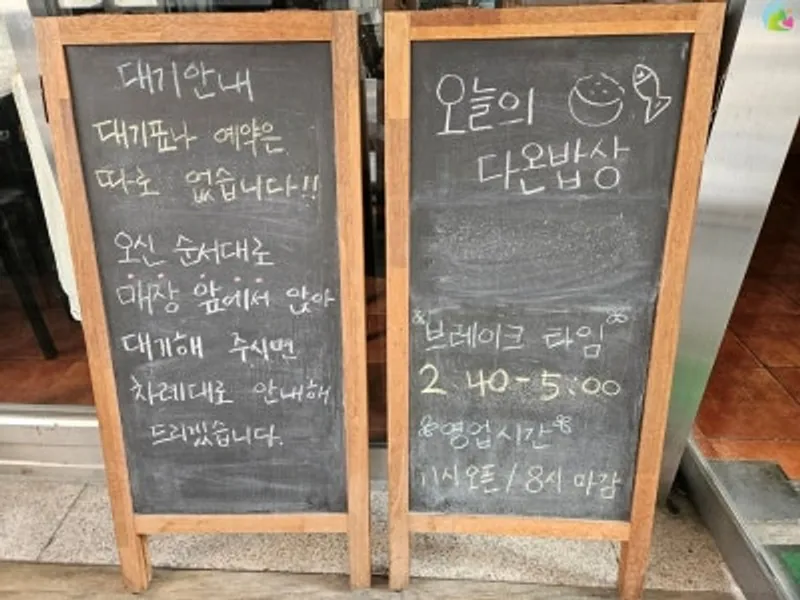 대기안내
대기표나 예약은
따로 없습니다!!
오신 순서대로
매장 앞에서 앉아
대기해 주시면
차례대로 안내해
드리겠습니다.
오늘의
다온밥상
브레이크 타임
2 40-5:00
영업시간
11시오픈/8시 마감